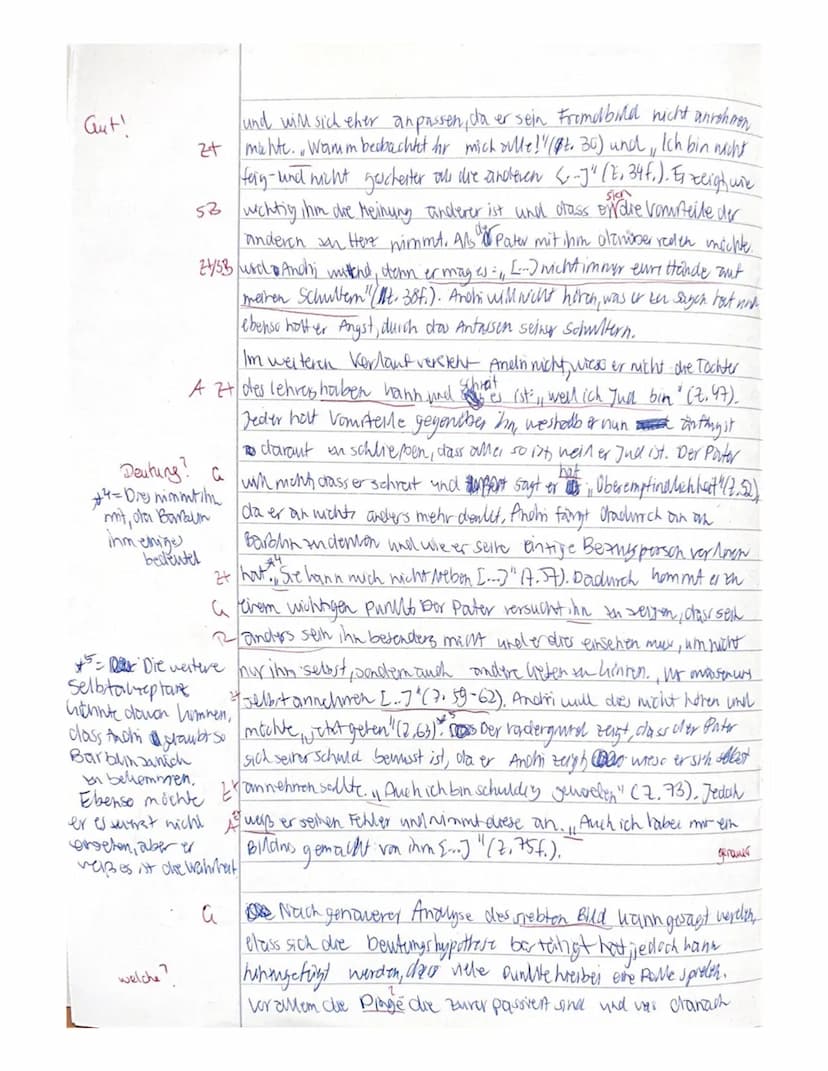 Gut!
und will sich eher anpassen, da er sein Fremdbild nicht annehmen
Zt möchte. „Warum beobachtet ihr mich alle!" (Z. 30) und „Ich bin nicht
feig und nicht gescheiter als die anderen [...]" (Z. 34f.). Es zeigt, wie
SB wichtig ihm die Meinung anderer ist und dass er sich die Vorurteile der
anderen zu Herz nimmt. Als der Pater mit ihm darüber reden möchte
Zt/SB wird Andri wütend, denn er mag es: „[...] nicht immer eure Hände auf
meinen Schultern" (Z. 38f.). Andri will nicht hören, was er zu sagen hat und
ebenso hat er Angst, durch das Anfassen seiner Schultern.
Im weiteren Verlauf versteht Andri nicht, wieso er nicht die Tochter
A Zt des Lehrers haben kann und schreit es ist: „weil ich Jud bin" (Z. 47).
Jeder hat Vorurteile gegenüber ihn, weshalb er nun anfängt
daraut zu schließen, dass alles so ist, weil er Jud ist. Der Pater
Deutung? G will nicht, dass er schreit und sagt er hat „Überempfindlichkeit" (Z. 52),
da er an nichts anders mehr denkt. Andri fängt dadurch an an
Barblin zu denken und wie er seine einzige Bezugsperson verloren
Zt hat.*4 „Sie kann mich nicht lieben [...]" (Z. 57). Dadurch kommt er zu
G einem wichtigen Punkt. Der Pater versucht ihn zu zeigen, dass sein
R anders sein ihn besonders macht und er dies einsehen muss, um nicht
nur ihn selbst, sondern auch andere lieben zu können. „Wir müssen uns
Zt selbst annehmen [...]" (Z. 59-62). Andri will dies nicht hören und
möchte „jetzt gehen" (Z. 63)*5. Der Vordergrund zeigt, dass der Pater
sich seiner Schuld bewusst ist, da er Andri zeigt wieso er sich selbst
Zt annehmen sollte. „Auch ich bin schuldig geworden" (Z. 73). Jedoch
A weiß er seinen Fehler und nimmt diese an. „Auch ich habe mir ein
Bildnis gemacht von ihm [...]" (Z. 75f.).
*4 = Dies nimmt ihn
mit, da Barblin
ihm einiges
bedeutet
*5 = Die weitere
Selbstakzeptanz
könnte davon kommen,
dass Andri glaubt so
Barblin zurück
zu bekommen.
Ebenso möchte
er es zuerst nicht
einsehen, aber er
weiß es ist die Wahrheit
genauer
G Nach genauerer Analyse des siebten Bild kann gesagt werden,
dass sich die Deutungshypothese bestätigt hat, jedoch kann
welche? hinzugefügt werden, dass viele Punkte hierbei eine Rolle spielen.
Vor allem die Dinge die zuvor passiert sind und was danach